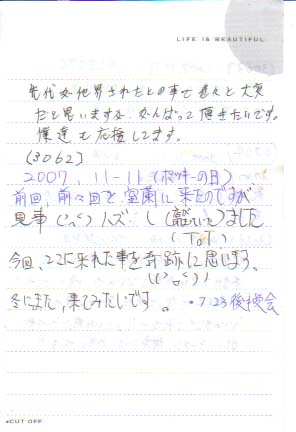 LIFE IS BEAUTIFUL
先代が他界されたとの事で色々と大変
だと思いますが、がんばって頂きたいです。
僕達も応援してます。
(3062)
2007.11-11(ポッキーの日)
前回、前々回と室蘭に来たのですが
見事(つ く)ハズし( いた)ました
(ToT)
今回、ここに来れた事を奇跡に思います、
冬にまた、来てみたいです。 •723後援会
✶CUT OFF